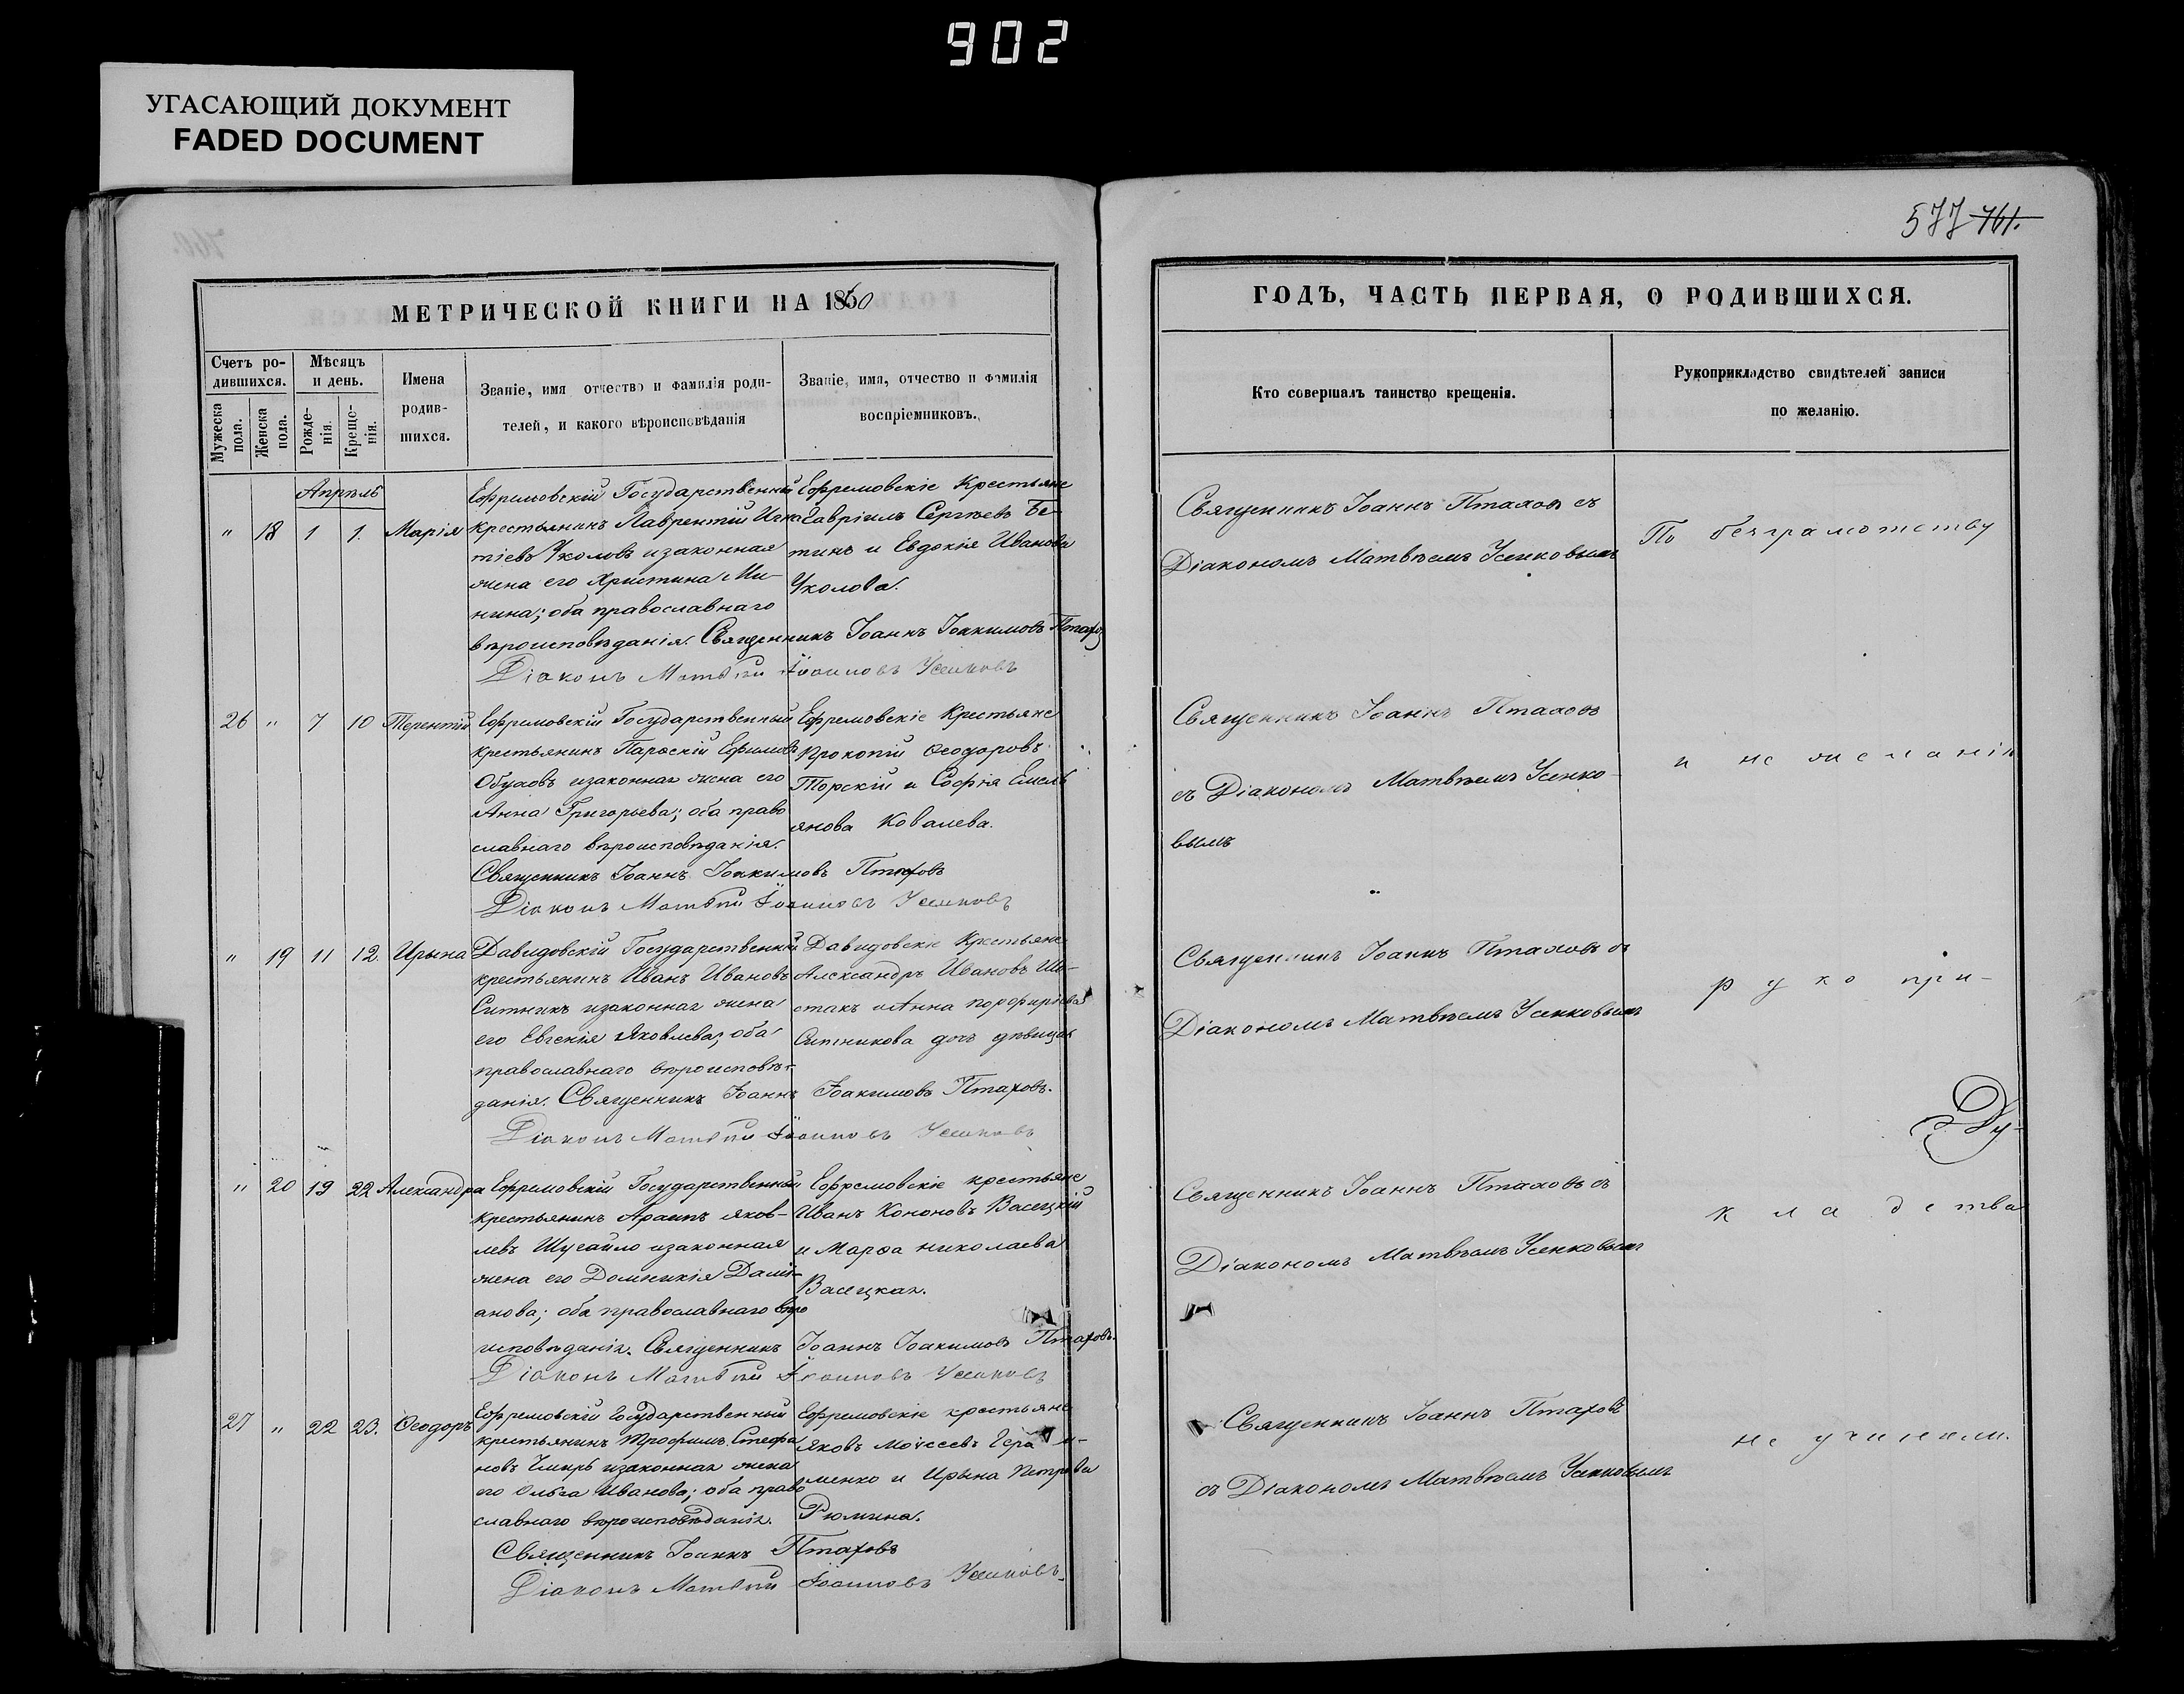 902
УГАСАЮЩИЙ ДОКУМЕНТ
FADED DOCUMENT
577 761.
МЕТРИЧЕСКОЙ КНИГИ НА 1860
Счетъ ро-
дившихся.
Мужеска
пола.
Женска
пола.
Мѣсяцъ
и день.
Рожде-
нія.
Креще-
нія.
Имена
родив-
шихся.
Званіе, имя отчество и фамилія роди-
телей, и какого вѣроисповѣданія
Званіе, имя, отчество и фамилія
воспріемниковъ.
Апрѣль
" 18 1 1. Марія
Ефремовскій Государственный
крестьянинъ Лаврентій Игна
тіевъ Уколовъ и законная
жена его Христина Ми-
нина; оба православнаго
вѣроисповѣданія. Священникъ Іоаннъ Іоакимовъ Птаховъ
Діаконъ Матвѣй Іоанновъ Усенковъ
Ефремовскіе Крестьяне
Гавріилъ Сергѣевъ Бе-
тинъ и Евдокія Иванова
Уколова.
26 " 7 10 Терентій
Ефремовскій Государственный
крестьянинъ Ефимовъ
и законная жена его
Анна Григорьева; оба право
славнаго вѣроисповѣданія.
Священникъ Іоаннъ Іоакимовъ Птаховъ
Діаконъ Матвѣй Іоанновъ Усенковъ
Ефремовскіе Крестьяне
Прокопій Ѳеодоровъ
Торскій и Софія Емель
янова Ковалева.
" 19 11 12. Ирына
Давидовскій Государственный
крестьянинъ Иванъ Ивановъ
Ситникъ и законная жена
его Евгенія Яковлева; оба
православнаго вѣроисповѣ-
данія. Священникъ Іоаннъ Іоакимовъ Птаховъ.
Діаконъ Матвѣй Іоанновъ Усенковъ
Давидовскіе Крестьяне
Александръ Ивановъ
и Анна Порфиріева
Ситникова дочь дѣвица
" 20 19 22 Александра
Ефремовскій Государственный
крестьянинъ Яков-
левъ Шугайло и законная
жена его Домникія Дамі-
анова; оба православнаго вѣро
исповѣданія. Священникъ Іоаннъ Іоакимовъ Птаховъ.
Діаконъ Матвѣй Іоанновъ Усенковъ
Ефремовскіе крестьяне
Иванъ Кононовъ Васецкій
и Марѳа Николаева
Васецкая.
27 " 22 23. Ѳеодоръ
Ефремовскій Государственный
крестьянинъ Трофимъ Стефа
новъ и законная жена
его Ольга Иванова; оба право
славнаго вѣроисповѣданія.
Священникъ Іоаннъ Птаховъ
Діаконъ Матвѣй Іоанновъ Усенковъ.
Ефремовскіе крестьяне
Яковъ Моѵсеевъ
менко и Ирына Петрова
Рюмина.
ГОДЪ, ЧАСТЬ ПЕРВАЯ, О РОДИВШИХСЯ.
Кто совершалъ таинство крещенія.
Рукоприкладство свидѣтелей записи
по желанію.
Священникъ Іоаннъ Птаховъ съ
Діакономъ Матвѣемъ Усенковымъ
По безграмотству
Священникъ Іоаннъ Птаховъ
съ Діакономъ Матвѣемъ Усенко-
вымъ
и не желанію
Священникъ Іоаннъ Птаховъ съ
Діакономъ Матвѣемъ Усенковымъ
руко при-
Ду-
Священникъ Іоаннъ Птаховъ съ
Діакономъ Матвѣемъ Усенковымъ
кладства
Священникъ Іоаннъ Птаховъ
съ Діакономъ Матвѣемъ Усенковымъ
не учинили.